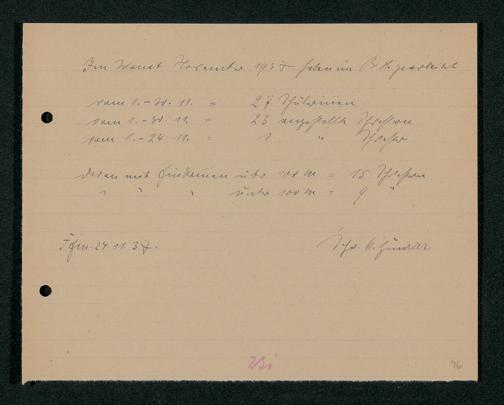 Im Monat November 1937 haben im B. K. gearbeitet
vom 1.-30. 11. = 27 Schülerinnen
vom 1.-30. 11. = 23 angestellte Schwestern
vom 1.-24. 11. = 1 " Schwester
Davon mit Einkommen über 100 M = 15 Schwestern
" " " unter 100 M = 9 "
24. 11. 37.
Schw.
96